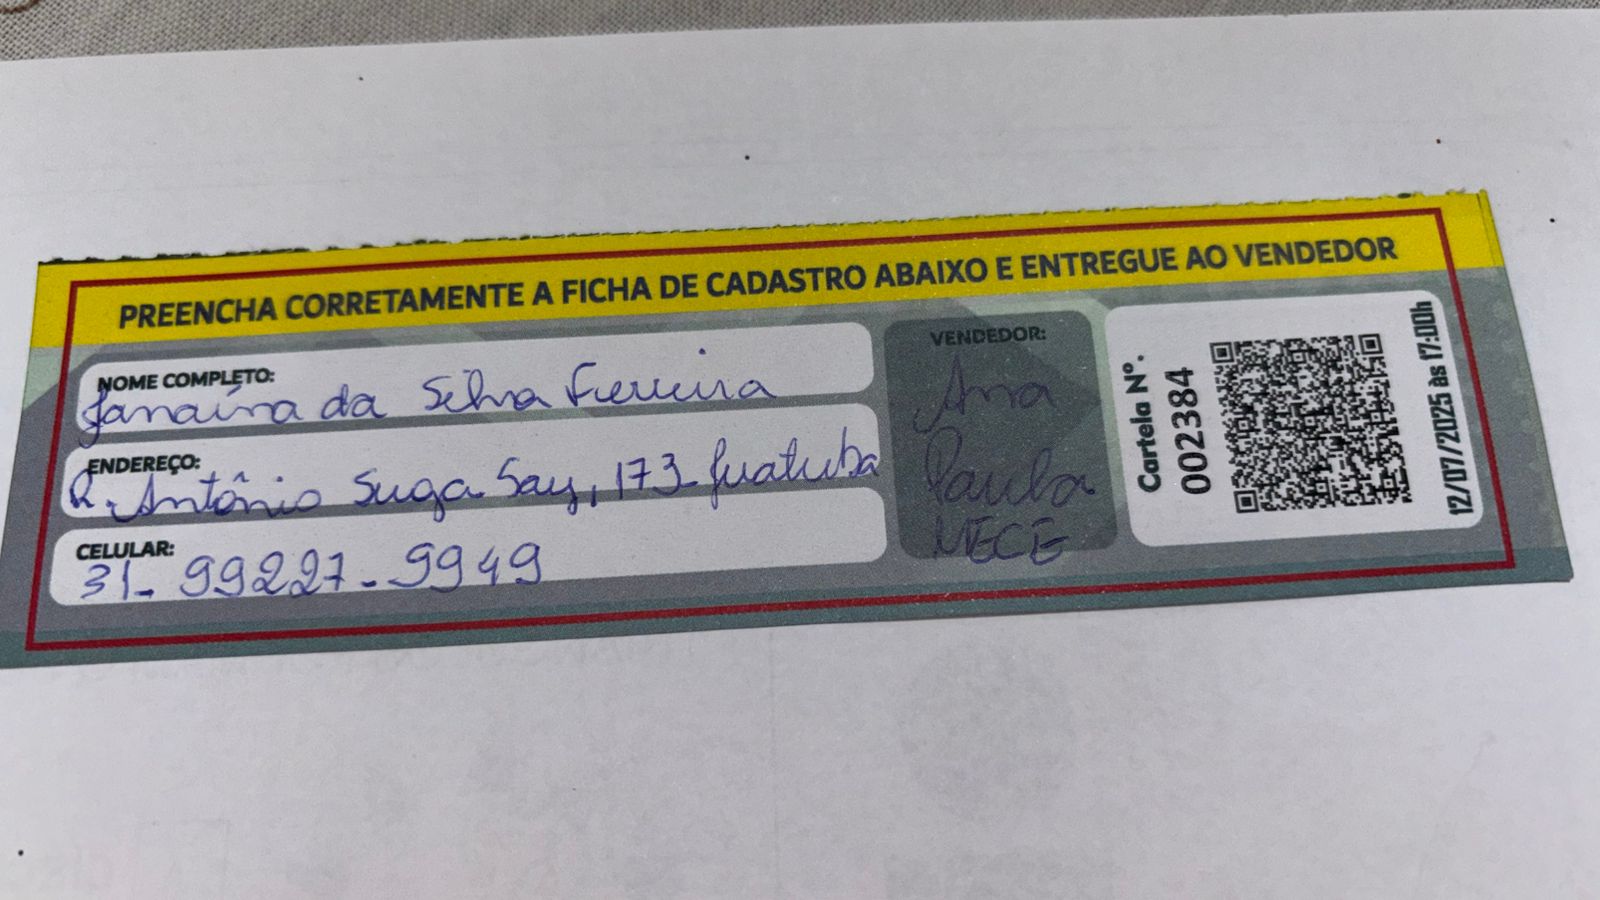 PREENCHA CORRETAMENTE A FICHA DE CADASTRO ABAIXO E ENTREGUE AO VENDEDOR
NOME COMPLETO:
Janaína da Silva Ferreira
ENDEREÇO:
R. Antônio Suga Say, 173 - Juatuba
CELULAR:
31- 99227-9949
VENDEDOR:
Ana
Paula
MECE
Cartela Nº.
002384
12/07/2025 às 17:00h